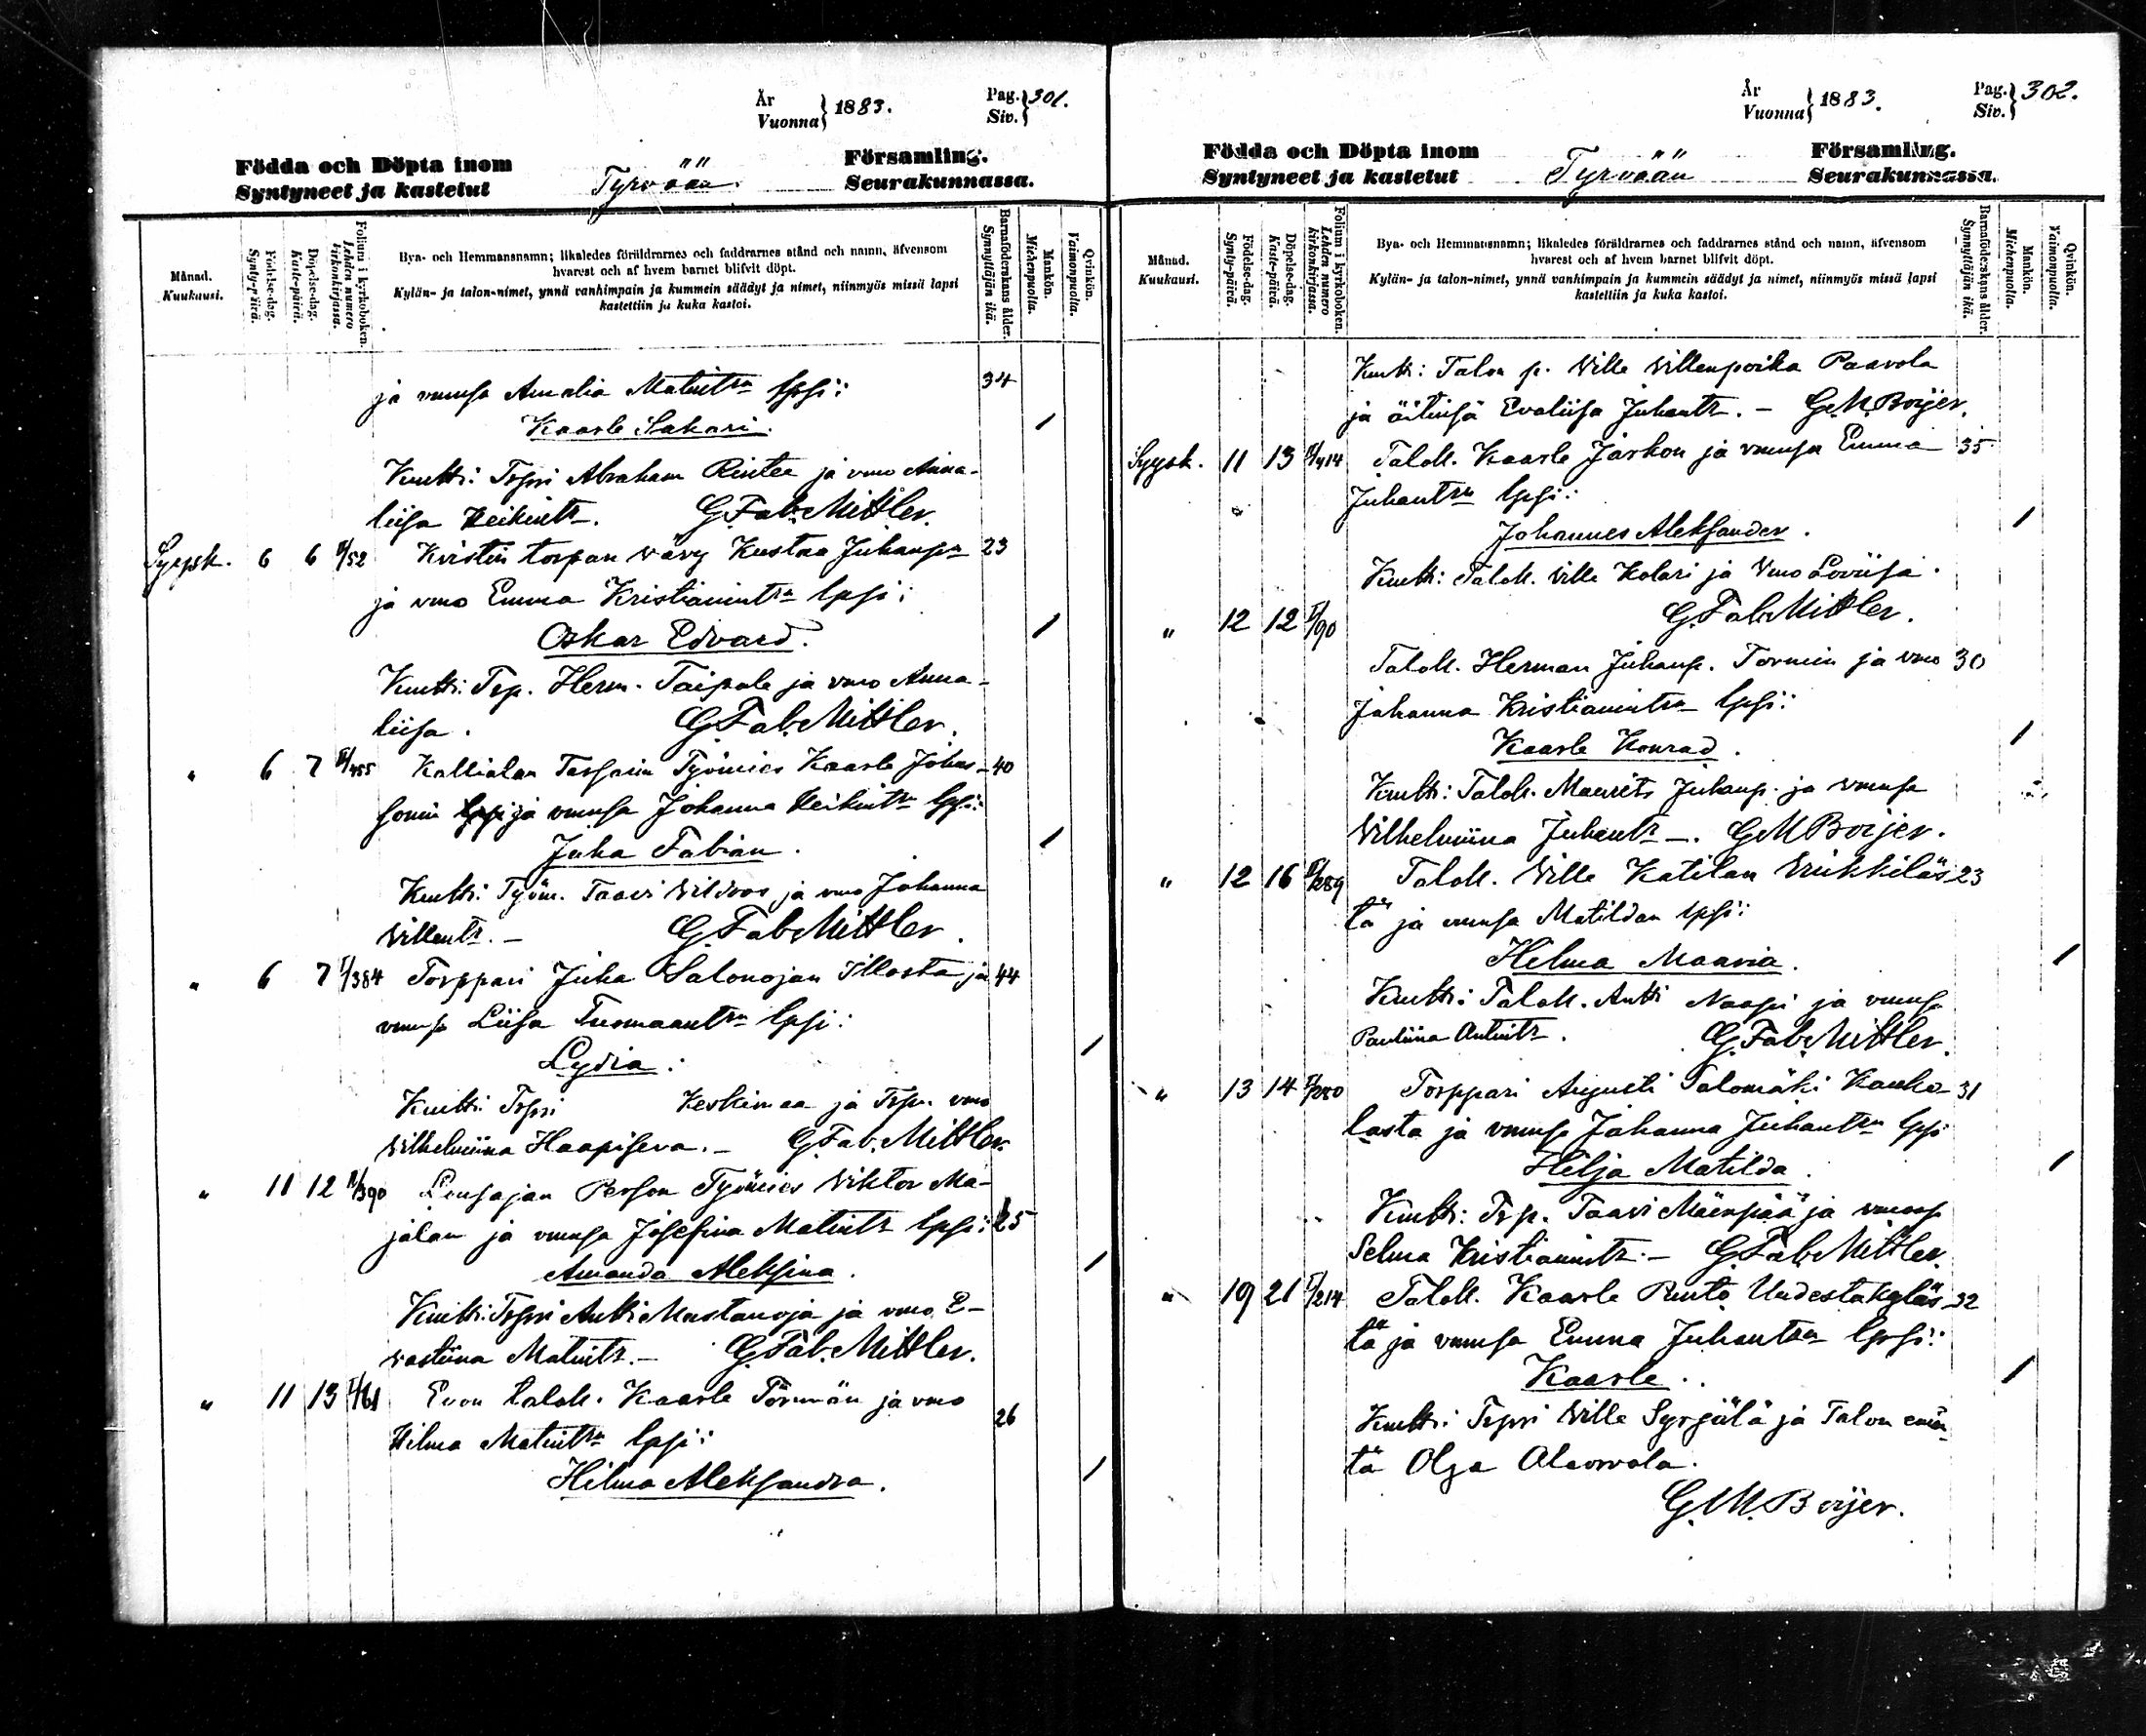 År
Vuonna } 1883.
Pag.
Siv. } 301.
Födda och Döpta inom
Syntyneet ja kastetut
Tyrvään
Församling.
Seurakunnassa.
Månad.
Kuukausi.
Födelse-dag.
Synty-päivä.
Döpelse-dag.
Kaste-päivä.
Folium i kyrkoboken.
Lehden numero kirkonkirjassa.
Bya- och Hemmansnamn; likaledes föräldrarnes och faddrarnes stånd och namn, äfvensom
hvarest och af hvem barnet blifvit döpt.
Kylän- ja talon-nimet, ynnä vanhimpain ja kummein säädyt ja nimet, niinmyös missä lapsi
kastettiin ja kuka kastoi.
Barnaföderskans ålder.
Synnyttäjän ikä.
Mankön.
Miehenpuolta.
Qvinkön.
Vaimonpuolta.
ja vmnsa Amalia Matintrn lpsi: 34
Kaarle Sakari. /
Kmtti: Trpri Abraham Rintee ja vmo Anna-
liisa Heikintr. G. Fab. Mittler.
Syysk. 6 6 /52 Kristin torpan vävy Kustaa Juhanpn 23
ja vmo Emma Kristianintrn lpsi:
Oskar Edvard. /
Kmtti: Trp. Herm. Taipale ja vmo Anna-
liisa. G. Fab. Mittler.
" 6 7 /455 Kallialan Työmies Kaarle Johns- 40
sonin ja vmnsa Johanna Heikintrn lpsi:
Juha Fabian. /
Kmtti: Työm. Taavi Wildroos ja vmo Johanna
Willentr. - G. Fab. Mittler.
" 6 7 /384 Torppari Juha Salonojan Illosta ja 44
vmnsa Liisa Tuomaantrn lpsi:
Lydia. /
Kmtti: Trpri Keskimaa ja Trp. vmo
Wilhelmiina Haapiseva. - G. Fab. Mittler.
" 11 12 /390 Työmies Wiktor Ma-
jalan ja vmnsa Josefina Matintr lpsi: 25
Amanda Aleksina. /
Kmtti: Trpri Antti Mustanoja ja vmo E-
vastiina Matintr. - G. Fab. Mittler.
" 11 13 /61 Evon talok. Kaarle Törmän ja vmo
Hilma Matintrn lpsi: 26
Hilma Aleksandra. /
År
Vuonna } 1883.
Pag.
Siv. } 302.
Födda och Döpta inom
Syntyneet ja kastetut
Tyrvään
Församling.
Seurakunnassa.
Månad.
Kuukausi.
Födelse-dag.
Synty-päivä.
Döpelse-dag.
Kaste-päivä.
Folium i kyrkoboken.
Lehden numero kirkonkirjassa.
Bya- och Hemmansnamn; likaledes föräldrarnes och faddrarnes stånd och namn, äfvensom
hvarest och af hvem barnet blifvit döpt.
Kylän- ja talon-nimet, ynnä vanhimpain ja kummein säädyt ja nimet, niinmyös missä lapsi
kastettiin ja kuka kastoi.
Barnaföderskans ålder.
Synnyttäjän ikä.
Mankön.
Miehenpuolta.
Qvinkön.
Vaimonpuolta.
Kmtti: Talon p. Wille Willenpoika Paavola
ja äitinsä Evaliisa Juhantr. - G. M. Boijer.
Syysk. 11 13 /414 Talok. Kaarle Jaskon ja vmnsa Emma 35
Juhantrn lpsi:
Johannes Aleksander. /
Kmtti: Talok. Wille Kolari ja Vmo Loviisa.
G. Fab. Mittler.
" 12 12 /90
Talok. Herman Juhanp. Tormin ja vmo 30
Johanna Kristianintrn lpsi:
Kaarle Konrad. /
Kmtti: Talok. Maurits Juhanp. ja vmnsa
Wilhelmiina Juhantr -. G M Boijer.
" 12 16 /289 Talok. Wille Katilan Vinkkiläs 23
tä ja vmnsa Matildan lpsi:
Helma Maaria. /
Kmtti: Talok. Antti Naapi ja vmnsa
Pauliina Antintr. G. Fab. Mittler.
" 13 14 /280 Torppari Augusti Talomäki Kauko- 31
lasta ja vmnsa Johanna Juhantrn lpsi
Hilja Matilda. /
Kmtti: Trp. Taavi Mäenpää ja vmnsa
Selma Kristianintr. - G. Fab. Mittler.
" 19 21 /214 Talok. Kaarle Punto Uudestakyläs- 32
tä ja vmnsa Emma Juhantrn lpsi:
Kaarle. /
Kmtti: Trpri Wille Syrjälä ja Talon emän-
tä Olga Alaorvola.
G. M. Boijer.